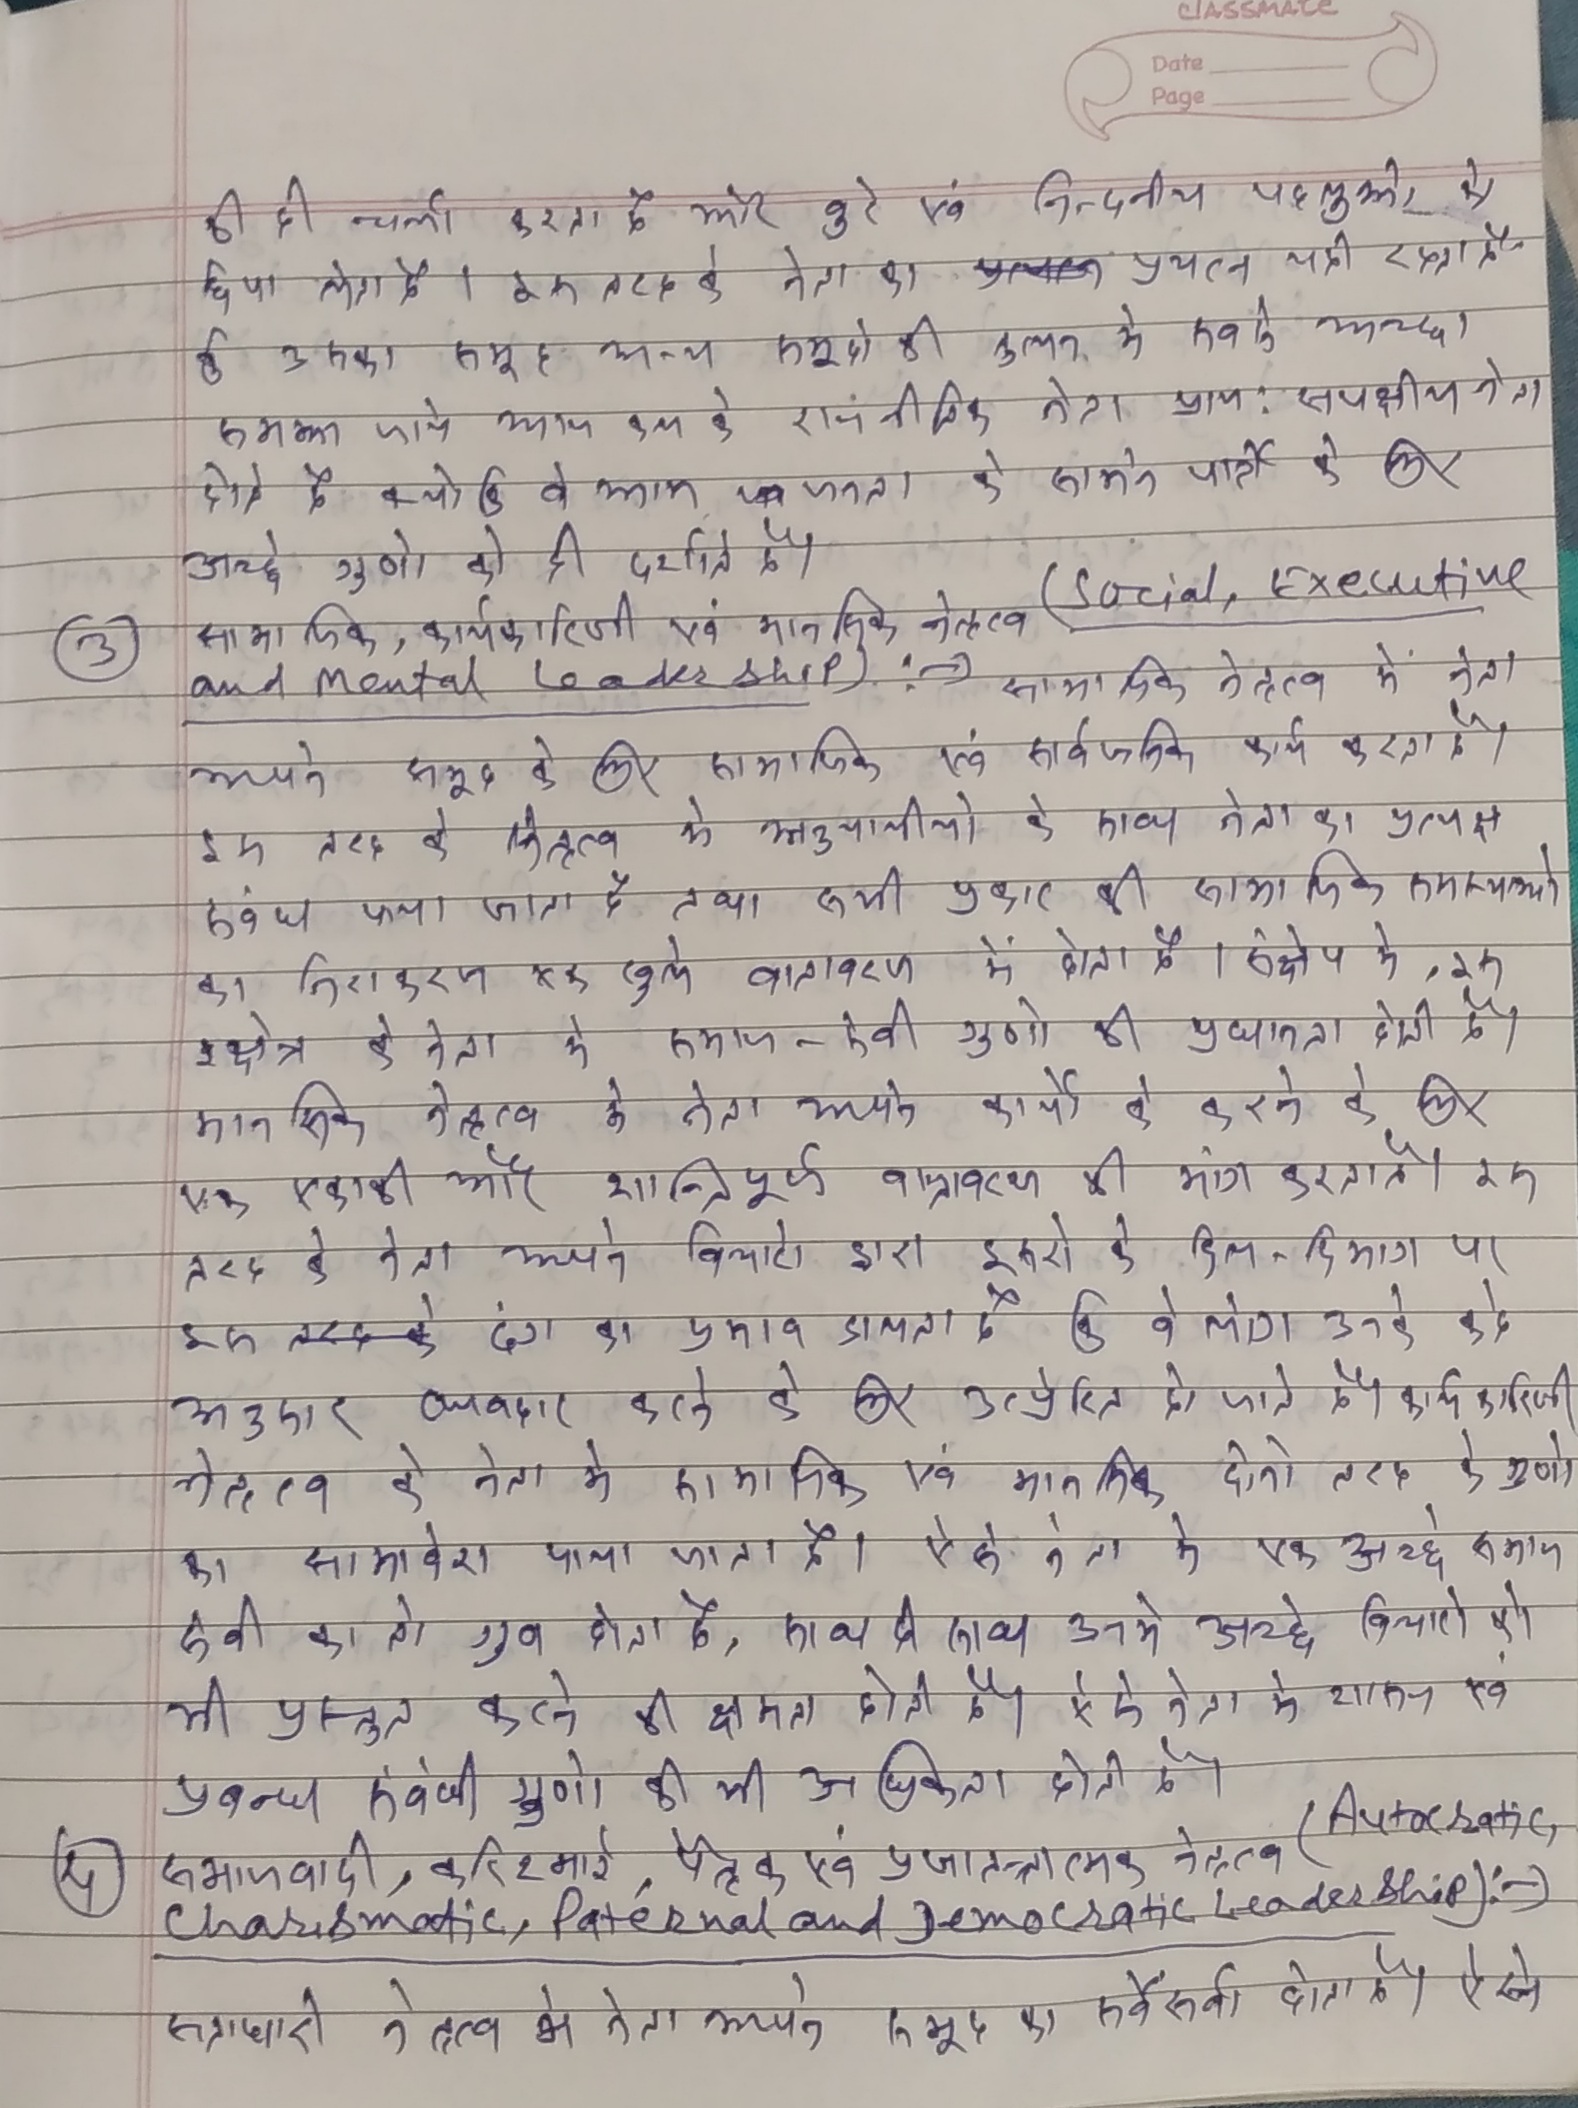 classmate
Date
Page
की ही चर्चा करता है और बुरे एवं निन्दनीय पहलुओं को
छिपा लेता है। इस तरह के नेता का प्रयत्न यही रहता है
कि उसका समूह अन्य समूहों की तुलना में सबसे अच्छा
समझा जाये आज कल के राजनीतिक नेता प्राय: सपक्षीय नेता
होते है क्योकि वे आम जनता के सामने पार्टी के लिए
अच्छे गुणो को ही दर्शाते है।
③ सामाजिक, कार्यकारिणी एवं मानसिक नेतृत्व (Social, Executive
and Mental Leadership) :→ सामाजिक नेतृत्व में नेता
अपने समूह के लिए सामाजिक एवं सार्वजनिक कार्य करता है।
इस तरह के नेतृत्व मे अनुयायीयो के साथ नेता का प्रत्यक्ष
संबंध पाया जाता है तथा सभी प्रकार की सामाजिक समस्याओ
का निराकरण एक खुले वातावरण में होता है। संक्षेप मे, इस
क्षेत्र के नेता मे समाज-सेवी गुणो की प्रधानता होती है।
मानसिक नेतृत्व के नेता अपने कार्यो के करने के लिए
एक एकाकी और शान्तिपूर्ण वातावरण की मांग करता है। इस
तरह के नेता अपने विचारो द्वारा दूसरो के दिल-दिमाग पर
इस तरह के ढंग का प्रभाव डालता है कि वे लोग उनके कहे
अनुसार व्यवहार करने के लिए उत्प्रेरित हो जाते है। कार्यकारिणी
नेतृत्व के नेता मे सामाजिक एवं मानसिक दोनो तरह के गुणो
का सामावेश पाया जाता है। ऐसे नेता मे एक अच्छे समाज
सेवी का तो गुण होता है, साथ ही साथ उनमे अच्छे विचारो को
भी प्रस्तुत करने की क्षमता होती है। ऐसे नेता मे शासन एवं
प्रबन्ध संबंधी गुणो की भी अधिकता होती है।
④ समाजवादी, करिश्माई, पैतृक एवं प्रजातन्त्रात्मक नेतृत्व (Autocratic,
Charismatic, Paternal and Democratic Leadership) :→
सत्ताधारी नेतृत्व मे नेता अपने समूह का सर्वेसर्वा होता है। ऐसे